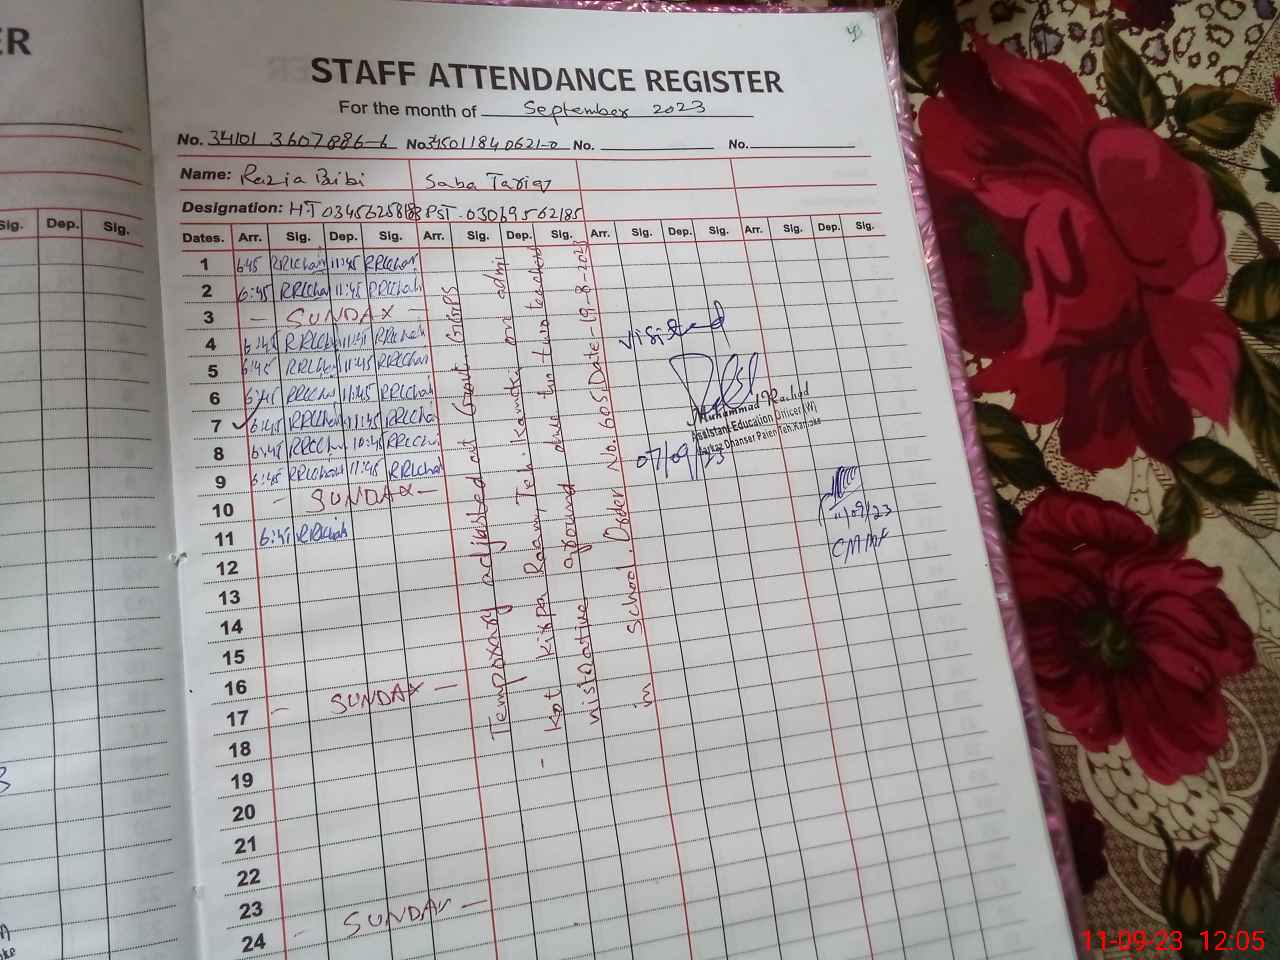 ER
STAFF ATTENDANCE REGISTER
For the month of September 2023
No. 34101 3607886-6 No. 345011840621-0 No. No.
Name: Razia Bibi Saba Tariq
Designation: HT PST.
Sig. Dep. Sig.
Dates. Arr. Sig. Dep. Sig. Arr. Sig. Dep. Sig. Arr. Sig. Dep. Sig. Arr. Sig. Dep. Sig.
1 645 11:45
2 6:45 11:45
3 - SUNDAY -
4 6:45 11:45
5 6:45 11:45
6 6:45 11:45
7 6:45 11:45
8 6:45 10:45
9 6:45 11:45
10 - SUNDAY -
11 6:45
12
13
14
15
16
17 - SUNDAY -
18
19
20
21
22
23
24 - SUNDAY -
Temporary adjusted at Govt. GGPS
- Kot Kirpa Raam, Teh. Kamoki, on admi
nistrative ground due to two teachers
in school. Order No. 605, Date-19-8-2023
visited
Muhammad Rashad
Assistant Education Officer (W)
Markaz Dhanser Paien Teh. Kamoke
07/09/23
11/09/23
11-09-23 12:05